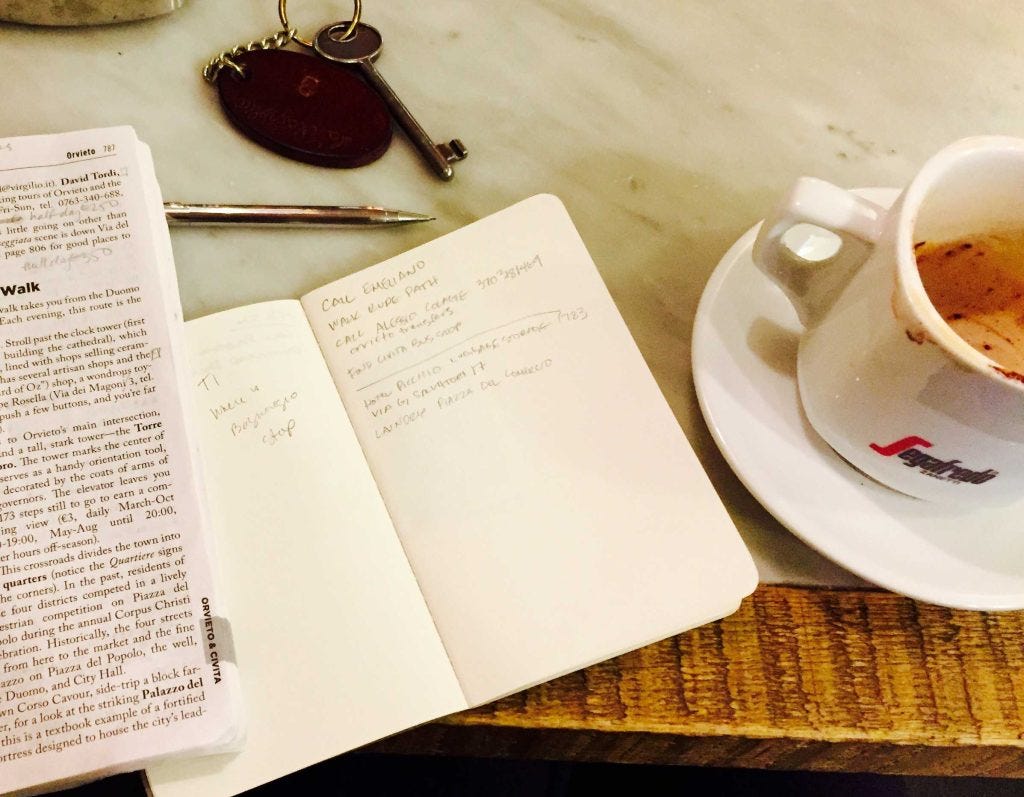 Orvieto 787
@virgilio.it). David Tordi,
king tours of Orvieto and the
Fri-Sun, tel. 0763-340-688,
half day €250.
little going on other than
seggiata scene is down Via del
page 806 for good places to
full day 350
Walk
walk takes you from the Duomo
Each evening, this route is the
. Stroll past the clock tower (first
building the cathedral), which
, lined with shops selling ceram-
has several artisan shops and the
ard of Oz") shop, a wondrous toy-
pe Rosella (Via dei Magoni 3, tel.
push a few buttons, and you're far
).
to Orvieto's main intersection,
nd a tall, stark tower—the Torre
oro. The tower marks the center of
serves as a handy orientation tool,
decorated by the coats of arms of
governors. The elevator leaves you
173 steps still to go to earn a com-
ing view (€3, daily March-Oct
0-19:00, May-Aug until 20:00,
er hours off-season).
This crossroads divides the town into
quarters (notice the Quartiere signs
he corners). In the past, residents of
e four districts competed in a lively
estrian competition on Piazza del
polo during the annual Corpus Christi
ebration. Historically, the four streets
from here to the market and the fine
azzo on Piazza del Popolo, the well,
e Duomo, and City Hall.
wn Corso Cavour, side-trip a block far-
er, for a look at the striking Palazzo del
this is a textbook example of a fortified
ortress designed to house the city's lead-
ORVIETO & CIVITA
TI
where is
Bagnoregio
stop
CALL EMELIANO
WALK RUPE PATH
CALL ALESSIO
orvieto transfers
FIND CIVITA BUS SHOP
HOTEL PICCOLO LUGGAGE STORAGE 783
VIA G SALVATORI 17
LAUNDRY PIAZZA DEL COMERCIO
Segafredo